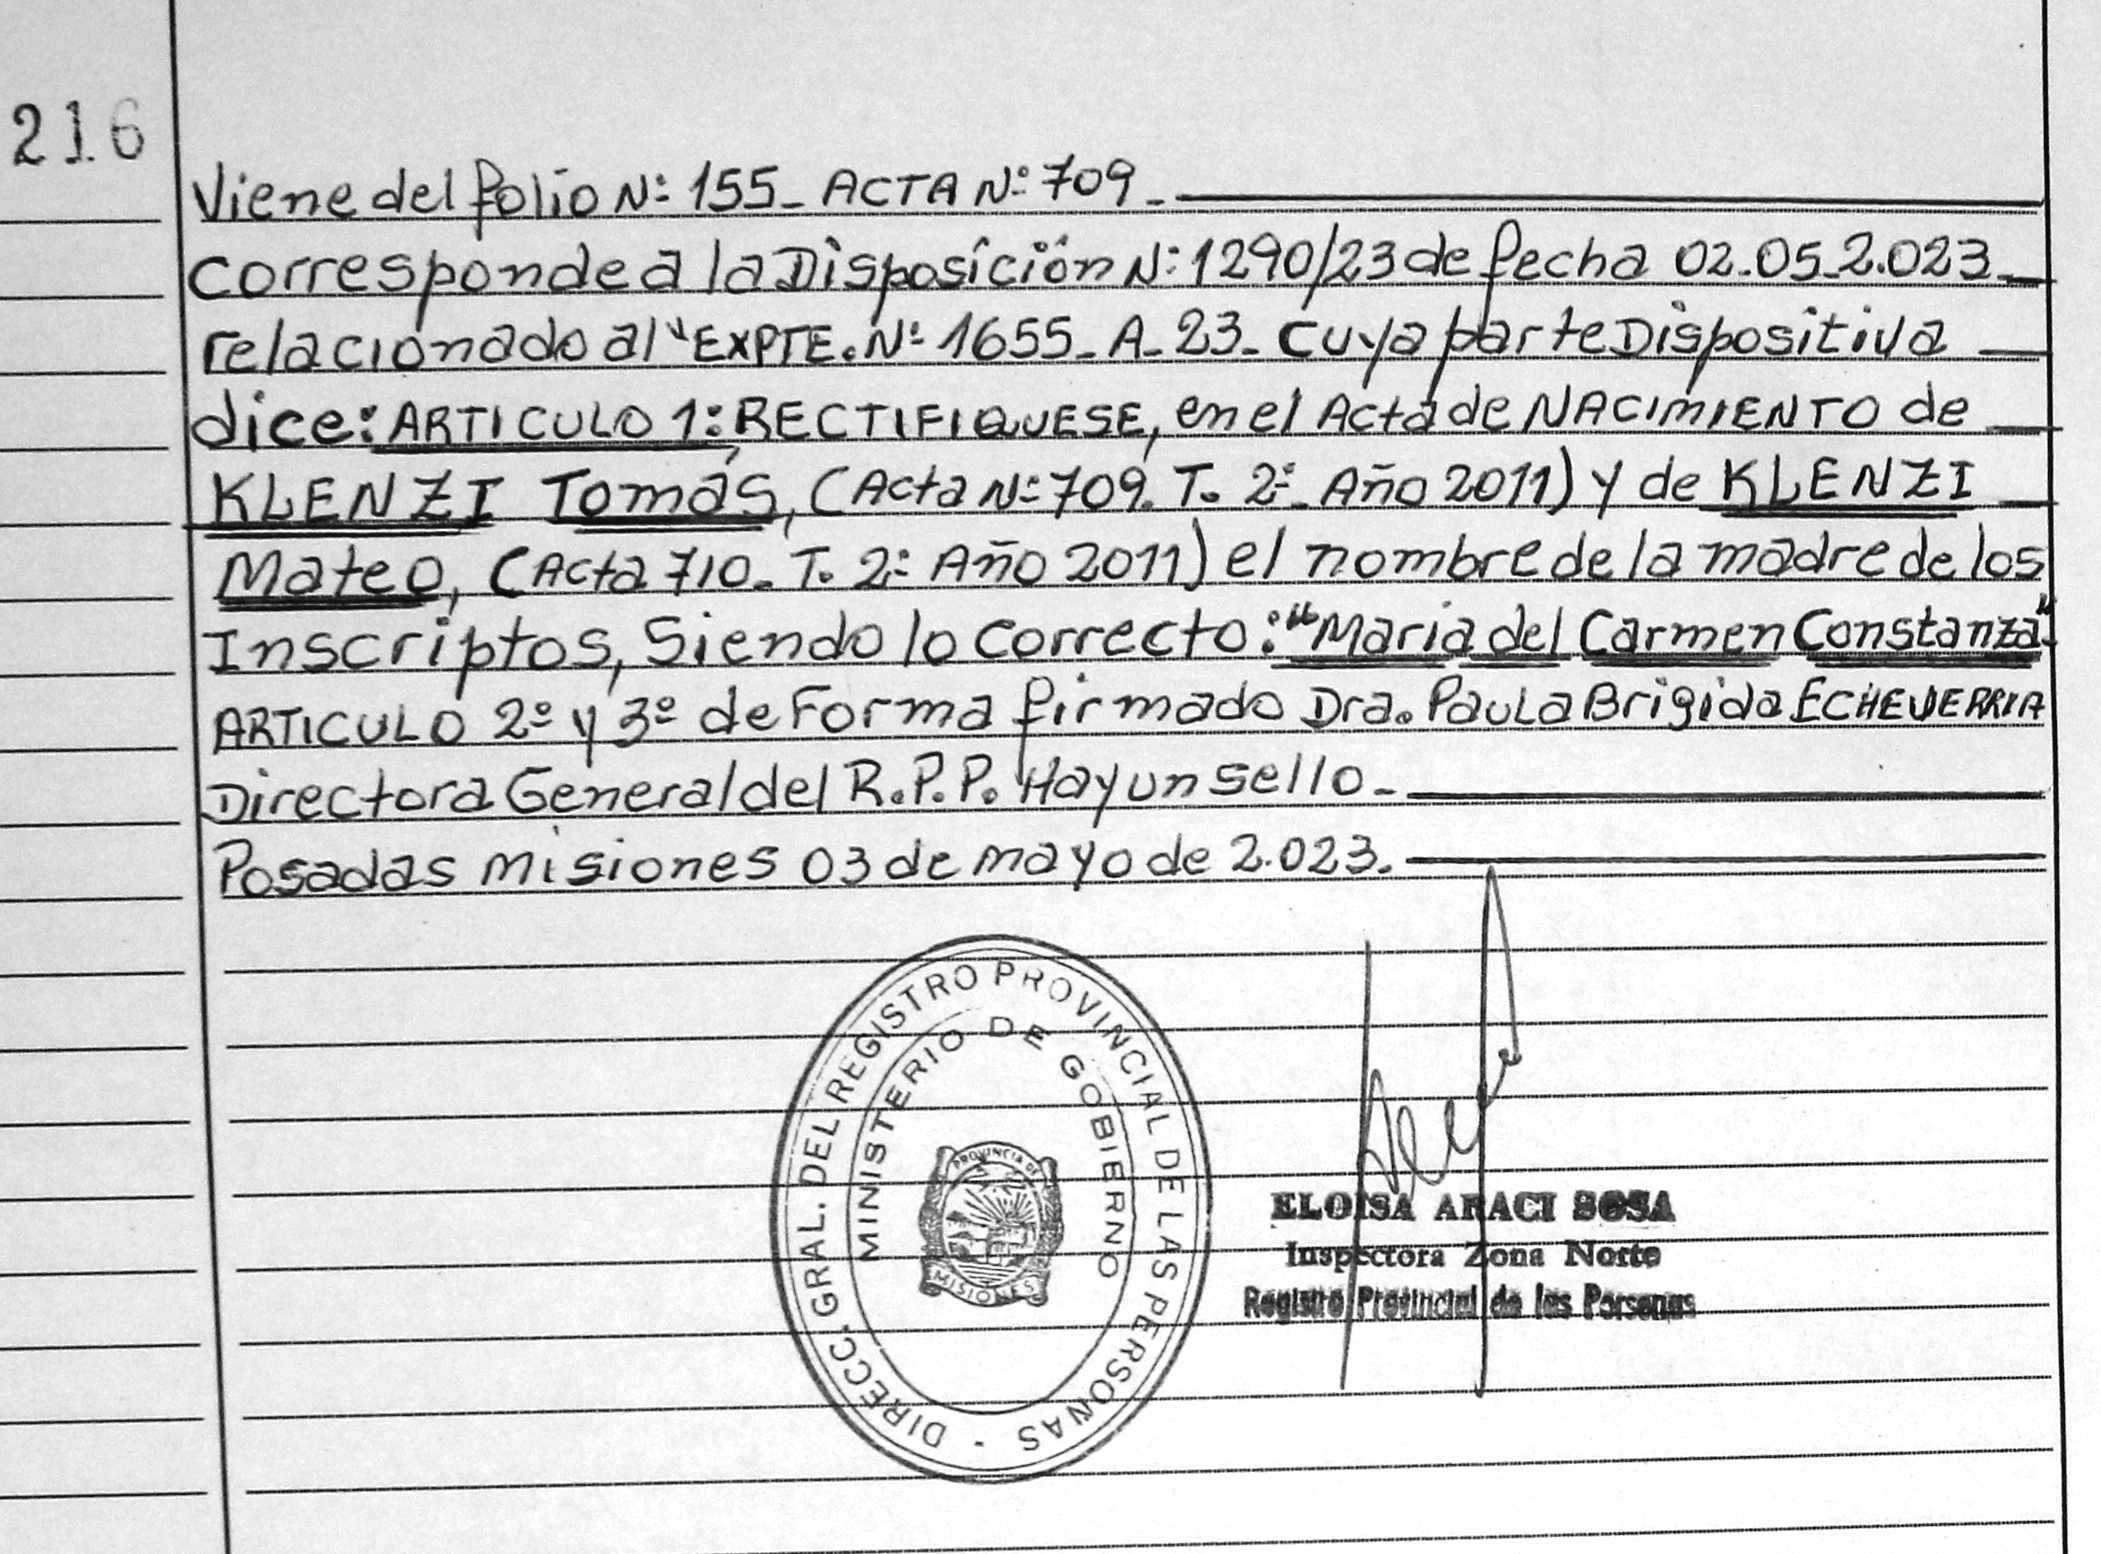 216
Viene del folio Nº 155_ ACTA Nº 709_
Corresponde a la Disposición Nº 1290/23 de fecha 02.05.2.023_
relacionado al "EXPTE. Nº 1655_ A_ 23_ Cuya parte Dispositiva
dice: ARTICULO 1: RECTIFIQUESE, en el Acta de NACIMIENTO de
KLENZI Tomás, (Acta Nº 709. T. 2º_ Año 2011) y de KLENZI
Mateo, (Acta 710_ T. 2º Año 2011) el nombre de la madre de los
Inscriptos, Siendo lo correcto: "Maria del Carmen Constanza".
ARTICULO 2º y 3º de Forma firmado Dra. Paula Brigida ECHEVERRIA
Directora General del R.P.P. Hay un sello_
Posadas misiones 03 de mayo de 2.023.
DIRECC. GRAL. DEL REGISTRO PROVINCIAL DE LAS PERSONAS -
MINISTERIO DE GOBIERNO
PROVINCIA DE
MISIONES
ELOISA ARACI SOSA
Inspectora Zona Norte
Registro Provincial de las Personas